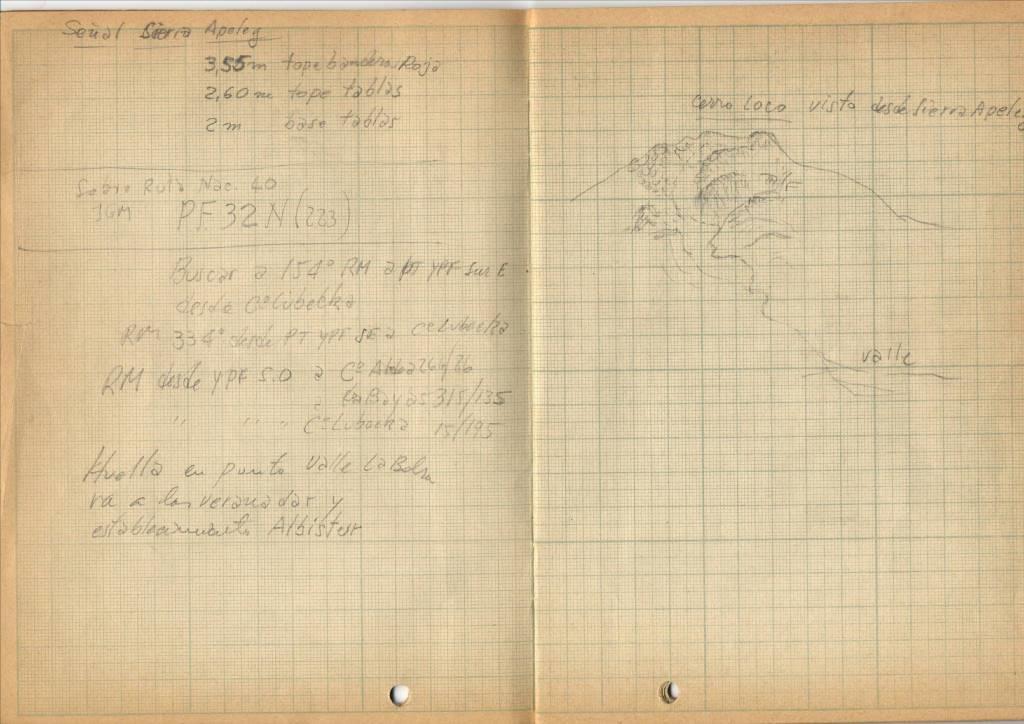 Señal Sierra Apeleg
3,55 m tope bandera Roja
2,60 m tope tablas
2 m base tablas
Sobre Ruta Nac. 40
IGM PF 32N (223)
Buscar a 154° RM a PT YPF Sur E
desde C° Lubecka
RM 334° desde PT YPF SE a C° Lubecka
RM desde YPF S.O a C°
Bayas 315/135
" " " C° Lubecka 15/195
Huella en punto Valle La
va a las veranadas y
establecimiento Albistur
cerro Loco vista desde Sierra Apeleg
valle